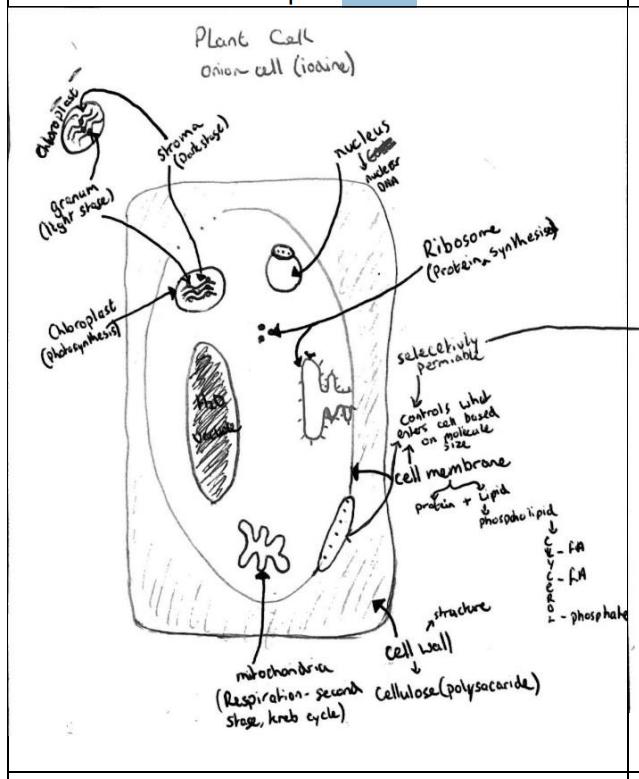 Plant Cell
onion cell (iodine)
Chloroplast
stroma
(Dark stage)
granum
(light stage)
nucleus
nuclear
DNA
Ribosome
(Protein synthesises)
Chloroplast
(photosynthesis)
selecetivly
permiable
controls what
enters cell based
on molecule
size
H2O
Vacuole
cell membrane
protein + Lipid
phospholipid
GLYCEROL
- FA
- FA
- phosphate
structure
cell wall
cellulose (polysacaride)
mitochondria
(Respiration - second
stage, kreb cycle)